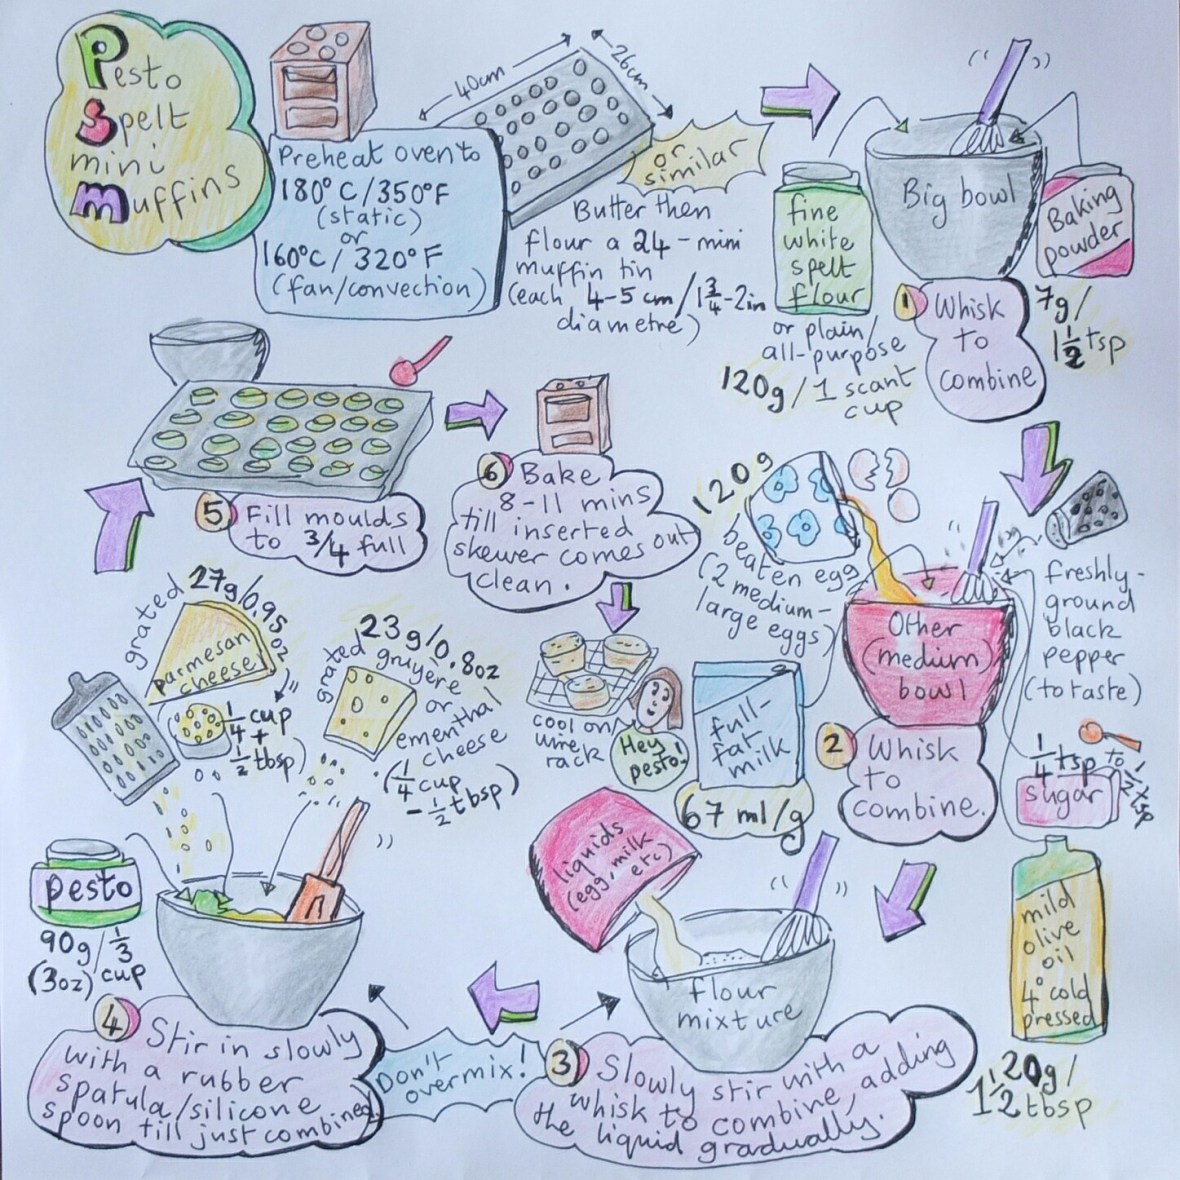 Pesto
Spelt
mini
muffins
Preheat oven to
180°C/350°F
(static)
or
160°C/320°F
(fan/convection)
40cm
26cm
or
similar
Butter then
flour a 24-mini
muffin tin
(each 4-5cm/1 3/4-2in
diametre)
fine
white
spelt
flour
or plain/
all-purpose
120g/1 scant
cup
Big bowl
Baking
powder
7g/
1 1/2 tsp
1 Whisk
to
combine
120g
beaten egg
(2 medium-
large eggs)
Other
(medium)
bowl
freshly-
ground
black
pepper
(to taste)
1/4 tsp to 1/2 tsp
sugar
full-
fat
milk
67 ml/g
2 Whisk
to
combine.
mild
olive
oil
4° cold
pressed
20g/
1 1/2 tbsp
liquids
(egg, milk
etc)
flour
mixture
3 Slowly stir with a
whisk to combine, adding
the liquid gradually.
Don't
overmix!
grated 27g/0.95 oz
parmesan
cheese
(1/4 cup
+
1/2 tbsp)
grated 23g/0.8oz
gruyere
or
ementhal
cheese
(1/4 cup
- 1/2 tbsp)
pesto
90g/1/3
(3oz) cup
4 Stir in slowly
with a rubber
spatula/silicone
spoon till just combined
5 Fill moulds
to 3/4 full
6 Bake
8-11 mins
till inserted
skewer comes out
clean.
cool on
wire
rack
Hey
pesto!